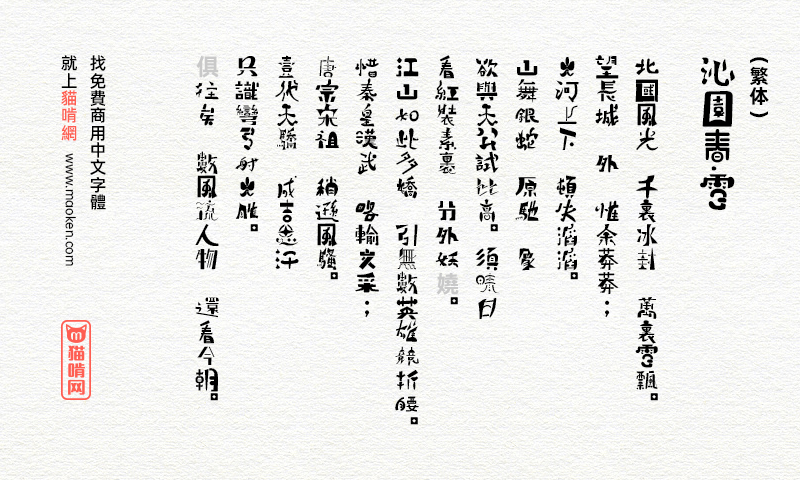 沁園春·雪（繁体）
北國風光 千裏冰封 萬裏雪飄。
望長城 外 惟余莽莽；
大河上下 頓失滔滔。
山舞銀蛇 原馳 象
欲與天公試比高。須晴日
看紅裝素裹 分外妖嬈。
江山如此多嬌 引無數英雄競折腰。
惜秦皇漢武 略輸文采；
唐宗宋祖 稍遜風騷。
壹代天驕 成吉思汗
只識彎弓射大雕。
俱往矣 數風流人物 還看今朝。
找免費商用中文字體
就上貓啃網 www.maoken.com
猫啃网